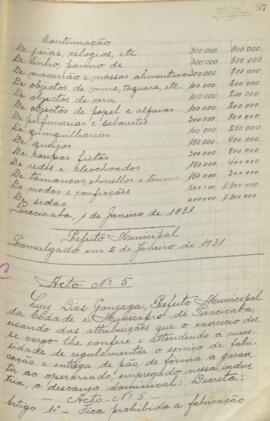 97
Continuação
De joias, relogios, etc 300.000 800.000
De linho, panno de 300.000 800.000
De macarrão e massas alimenticias 300.000 800.000
De objectos de vime, taquara, etc 100.000 200.000
De objectos de cera 100.000 200.000
De objectos de papel e 100.000
De perfumarias e sabonetes 300.000 800.000
De quinquilharias 100.000 250.000
De queijos 150.000 400.000
De roupas feitas 300.000 800.000
De redes e 150.000 400.000
De tamancos, chinellos e 150.000 300.000
De modas e confecções
De sedas
Piracicaba, 1 de Janeiro de 1931
Prefeito Municipal
Promulgado em 2 de Janeiro de 1931
Acto Nº 5
Luiz Dias Gonzaga, Prefeito Municipal
da Cidade e Municipio de Piracicaba,
usando das attribuições que o exercicio de
seu cargo lhe confere e attendendo a neces-
sidade de regulamentar o serviço de fabri-
cação e entrega de pão, de forma a garan-
tir ao operariado, empregado nessa indus-
tria, o descanço dominical: Decreta:
— Acto Nº 5 —
Artigo 1º — Fica prohibida a fabricação